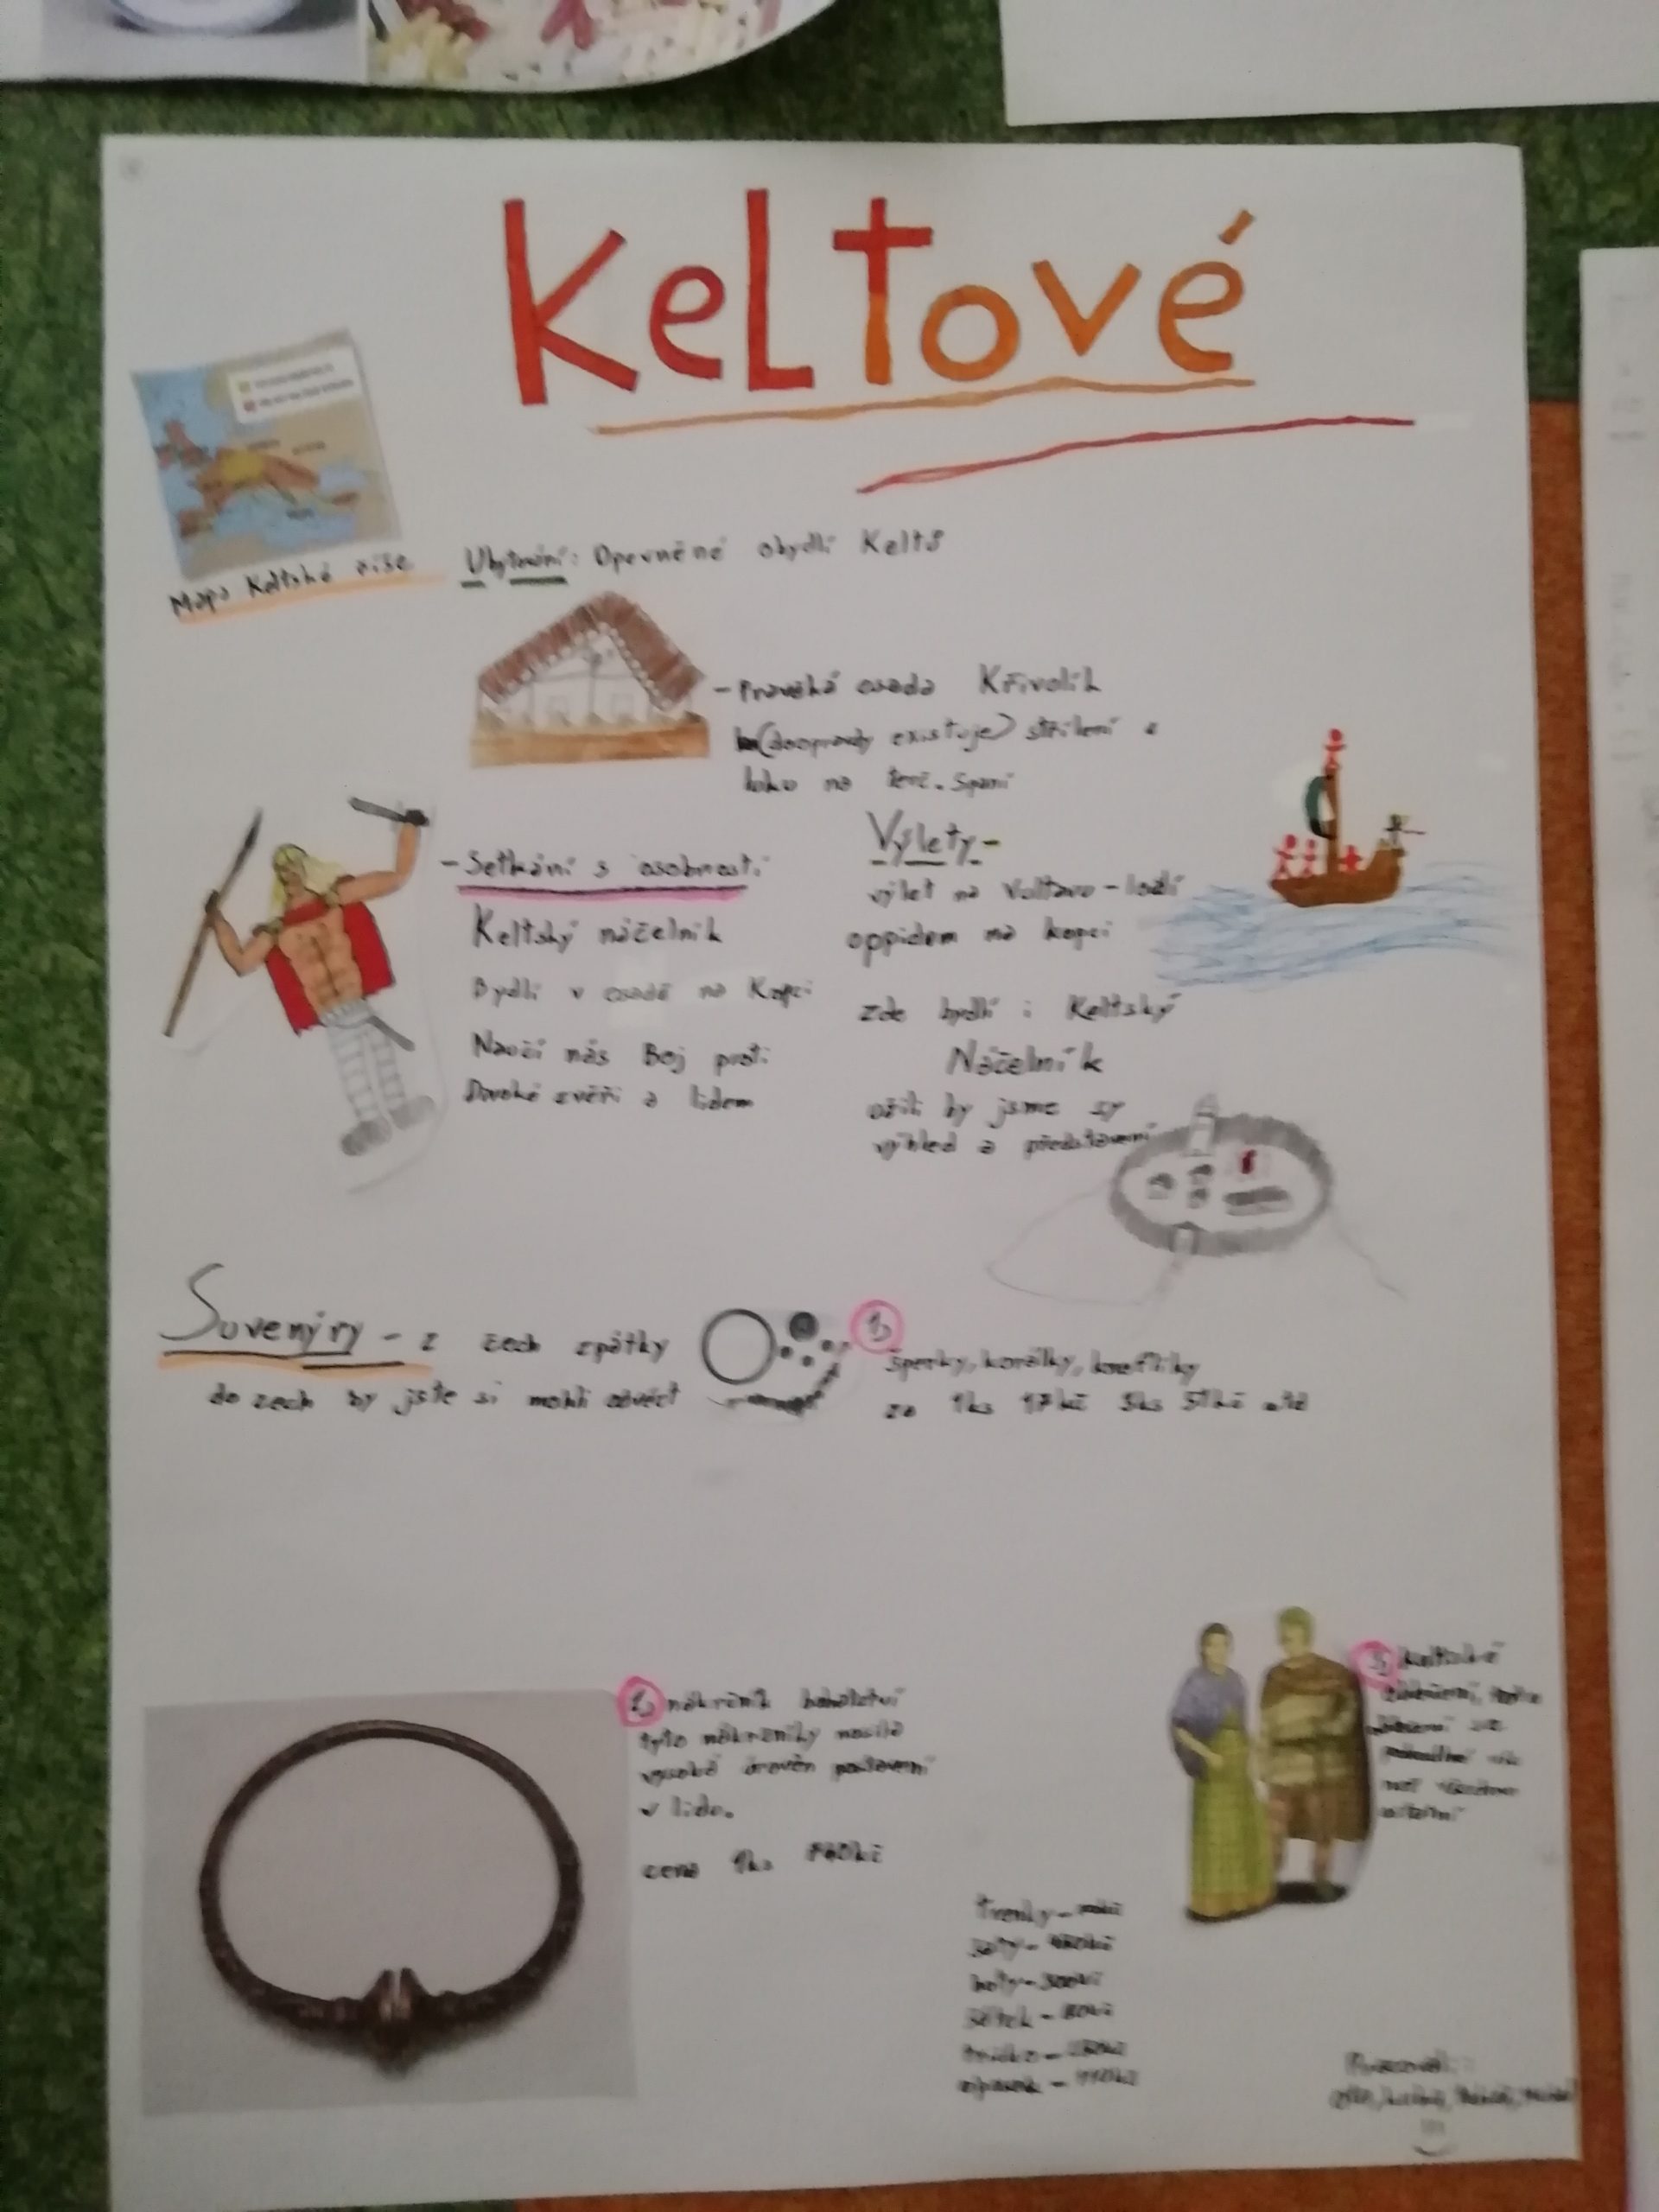 Keltové
Mapa Keltské říše
Ubytování: Opevněné obydlí Keltů
- Pravěká osada Křivolík
(doopravdy existuje) střílení z
luku na terč. Spaní
- Setkání s osobností
Keltský náčelník
Bydlí v osadě na Kopci
Naučí nás Boj proti
Divoké zvěři a lidem
Výlety -
výlet na Voltavu - lodí
oppidem na kopci
zde bydlí i Keltský
Náčelník
užili by jsme sy
výhled a představení
Suvenýry - z čech zpátky
do zech by jste si mohli odvést
1)
šperky, korálky, knoflíky
za 1ks 17kč 3ks 51kč atd
2) nákrčník bohatství
tyto nákrčníky nosila
vysoká úroveň postavení
v lidu.
cena 1ks
3) keltské
oblečení,
ostatní
trenky -
šaty -
boty - 300kč
šátek - 80kč
tričko -
opasek - 110kč
Pracovali: